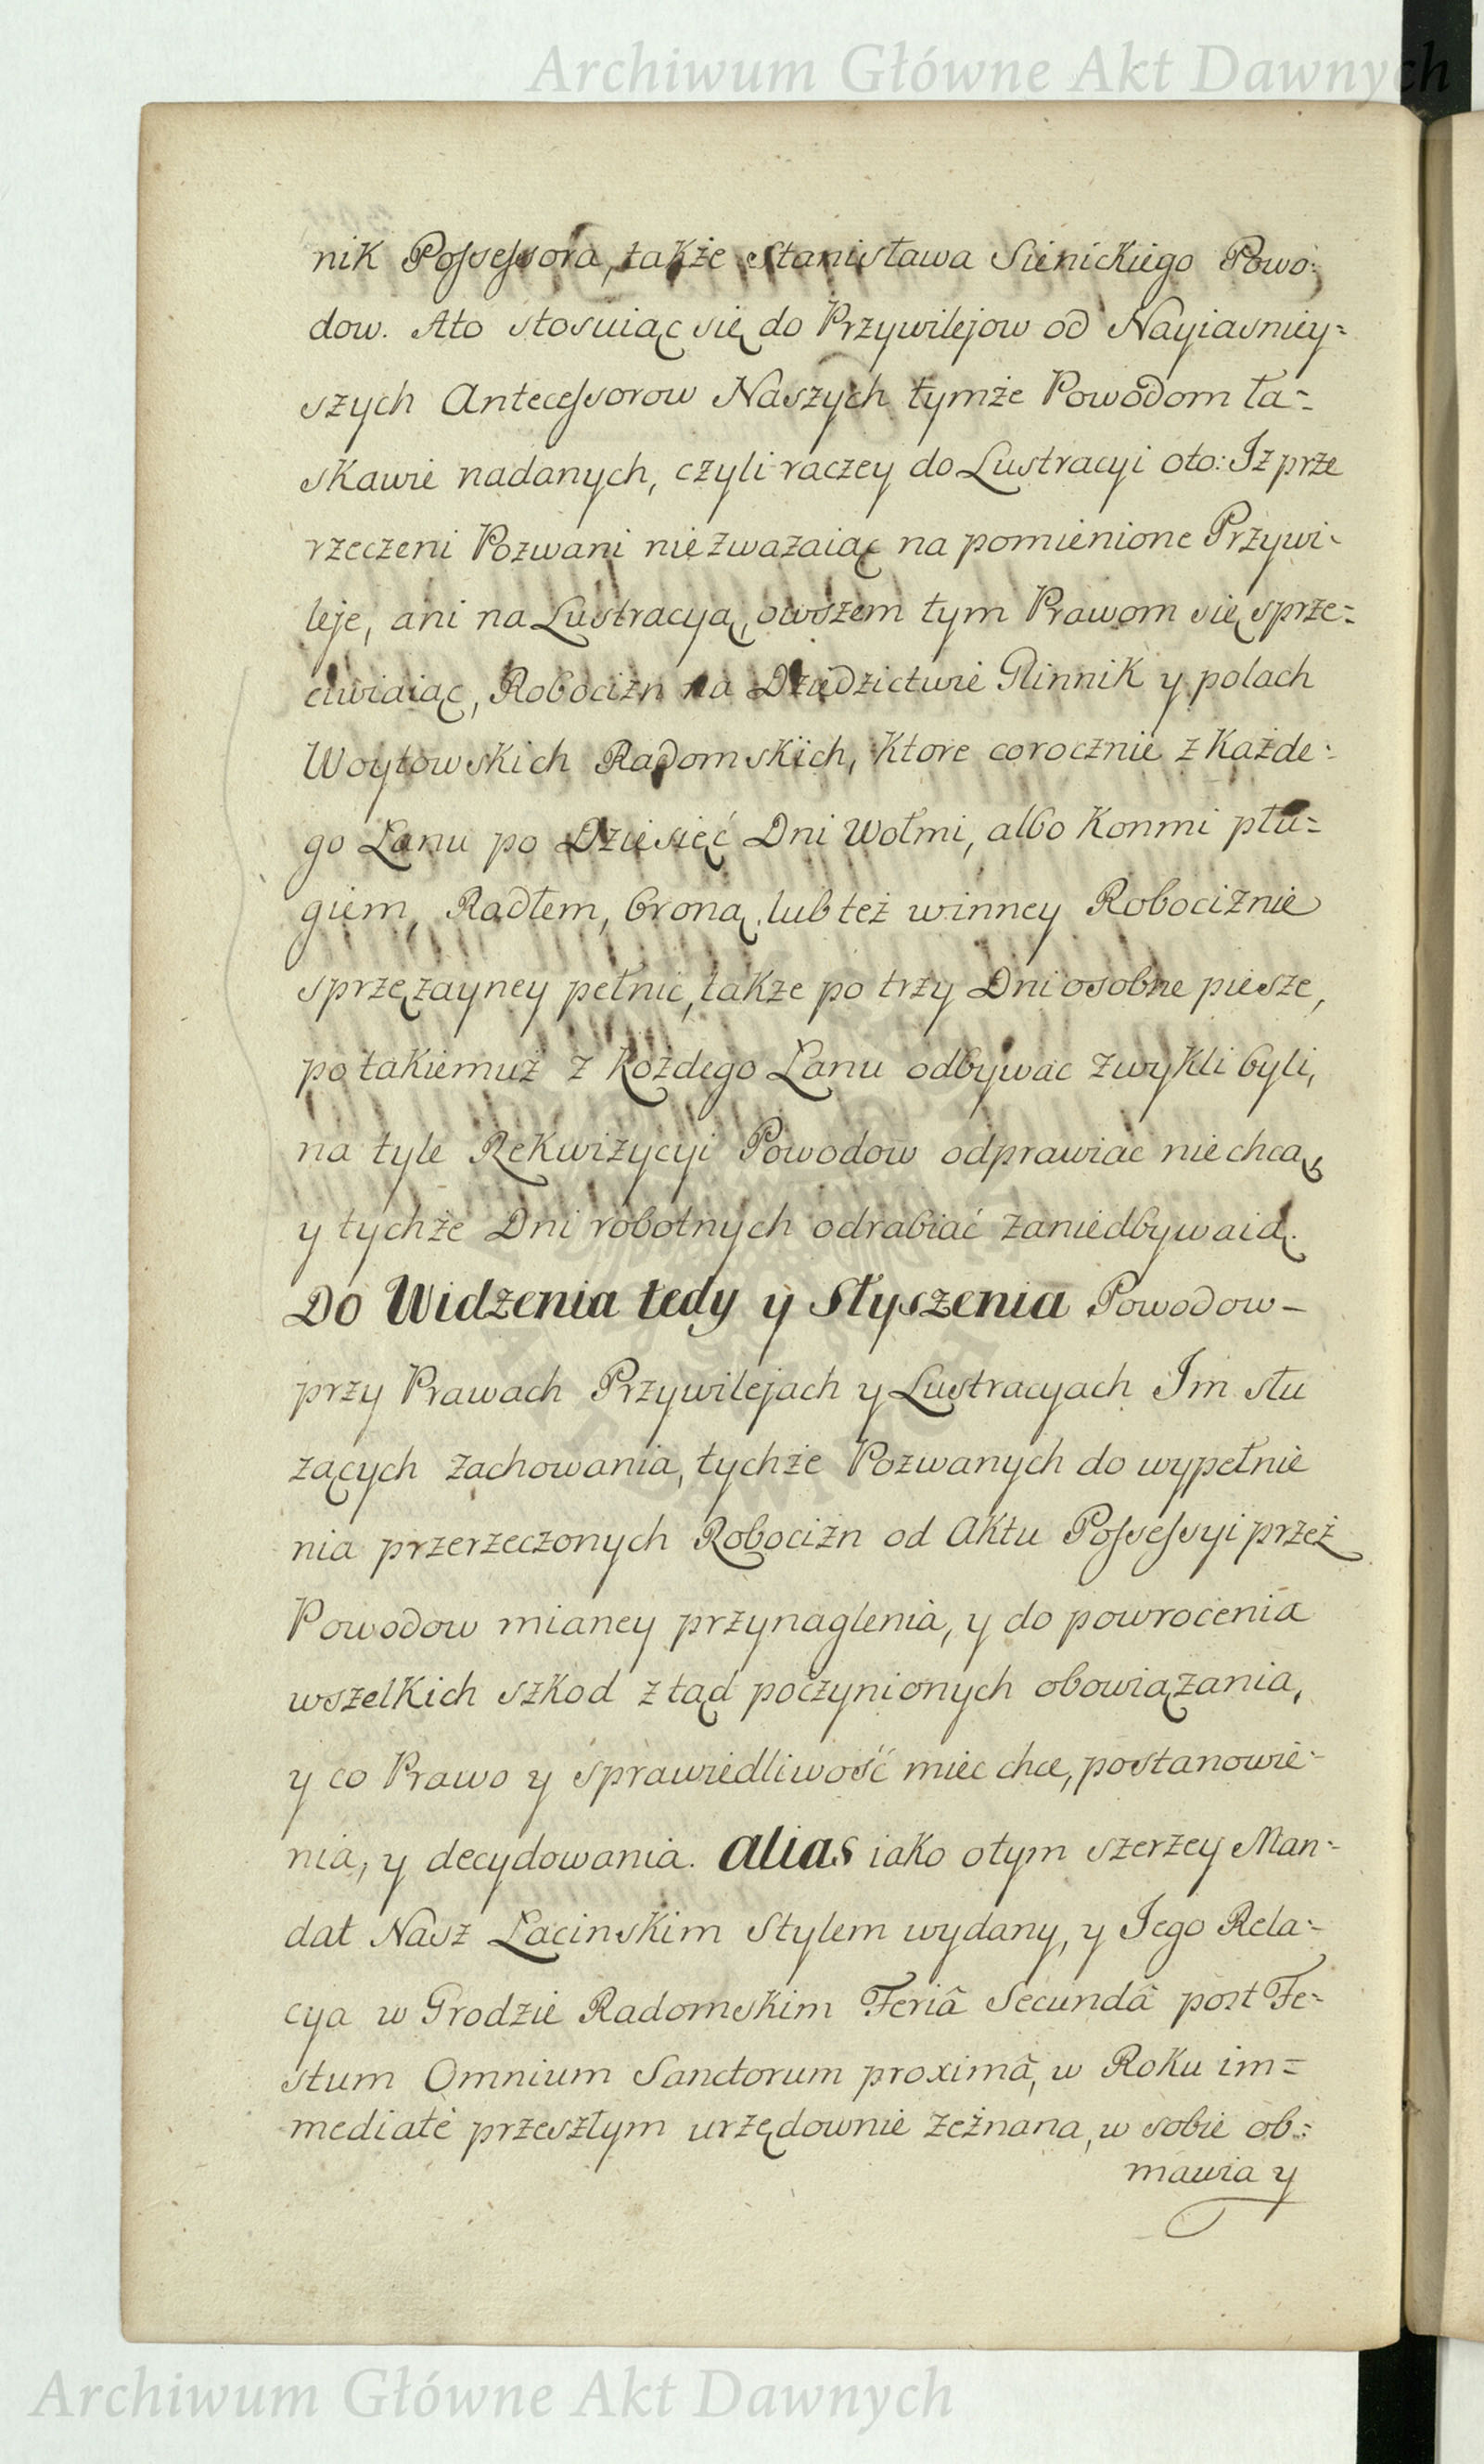 Archiwum Główne Akt Dawnych
nik Possessora, także Stanisława Sienickiego Powo:
dow. Ato stosuiąc się do Przywilejow od Nayiasniey=
szych Antecessorow Naszych tymże Powodom ła=
skawie nadanych, czyli raczey do Lustracyi oto: Iz prze
rzeczeni Pozwani niezwazaiąc na pomienione Przywi-
leje, ani na Lustracyą, owszem tym Prawom się sprze=
ciwiaiąc, Robocizn na Dziedzictwie Glinnik y polach
Woytowskich Radomskich, ktore corocznie z Każde=
go Łanu po Dziesięć Dni Wołmi, albo Konmi płu=
giem, Radłem, broną lub też winney Robociznie
sprzęzayney pełnic, także po trzy Dni osobne piesze,
po takiemuż z kożdego Łanu odbywac zwykli byli,
na tyle Rekwizycyi Powodow odprawiac niechcą,
y tychże Dni robotnych odrabiać zaniedbywaią.
Do Widzenia tedy y Słyszenia Powodow –
przy Prawach Przywilejach y Lustracyach Im słu
zących zachowania, tychże Pozwanych do wypełnie
nia przerzeczonych Robocizn od Aktu Possessyi przez
Powodow mianey przynaglenia, y do powrocenia
wszelkich szkod ztąd poczynionych obowiązania,
y co Prawo y sprawiedliwość miec chce, postanowie-
nia, y decydowania. Alias iako otym szerzey Man=
dat Nasz Łacinskim Stylem wydany, y Jego Rela=
cya w Grodzie Radomskim Feriâ Secundâ post Fe=
stum Omnium Sanctorum proximâ, w Roku im=
mediatè przeszłym urzędownie zeznana, w sobie ob=
mawia y
Archiwum Główne Akt Dawnych